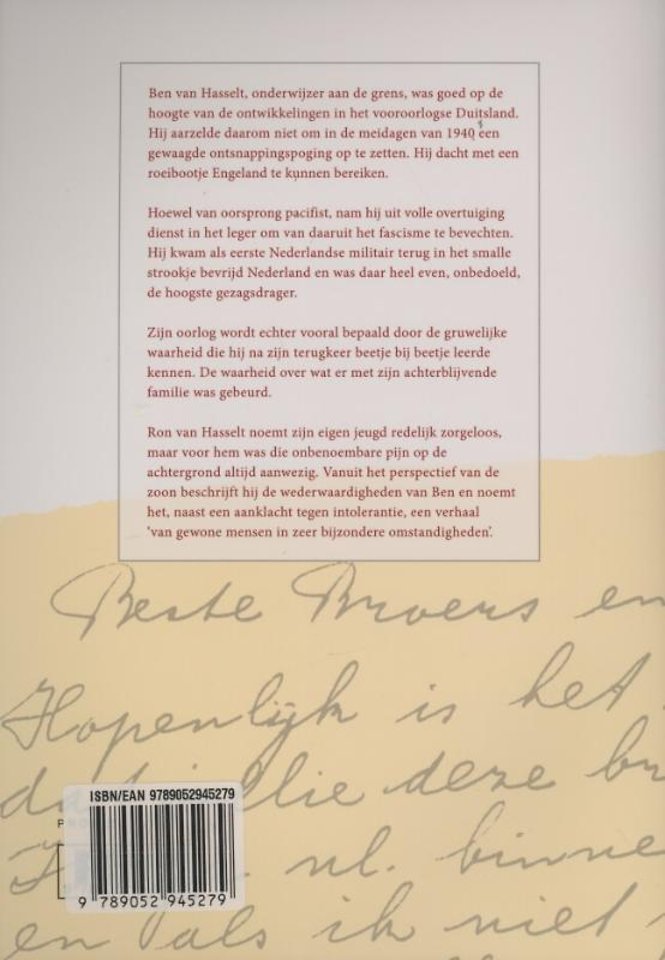 Ben van Hasselt, onderwijzer aan de grens, was goed op de
hoogte van de ontwikkelingen in het vooroorlogse Duitsland.
Hij aarzelde daarom niet om in de meidagen van 1940 een
gewaagde ontsnappingspoging op te zetten. Hij dacht met een
roeibootje Engeland te kunnen bereiken.
Hoewel van oorsprong pacifist, nam hij uit volle overtuiging
dienst in het leger om van daaruit het fascisme te bevechten.
Hij kwam als eerste Nederlandse militair terug in het smalle
strookje bevrijd Nederland en was daar heel even, onbedoeld,
de hoogste gezagsdrager.
Zijn oorlog wordt echter vooral bepaald door de gruwelijke
waarheid die hij na zijn terugkeer beetje bij beetje leerde
kennen. De waarheid over wat er met zijn achterblijvende
familie was gebeurd.
Ron van Hasselt noemt zijn eigen jeugd redelijk zorgeloos,
maar voor hem was die onbenoembare pijn op de
achtergrond altijd aanwezig. Vanuit het perspectief van de
zoon beschrijft hij de wederwaardigheden van Ben en noemt
het, naast een aanklacht tegen intolerantie, een verhaal
‘van gewone mensen in zeer bijzondere omstandigheden’.
Beste Broers en
Hopenlijk is het
deze
ISBN/EAN 9789052945279
nl. binne
en als ik niet
9 789052 945279